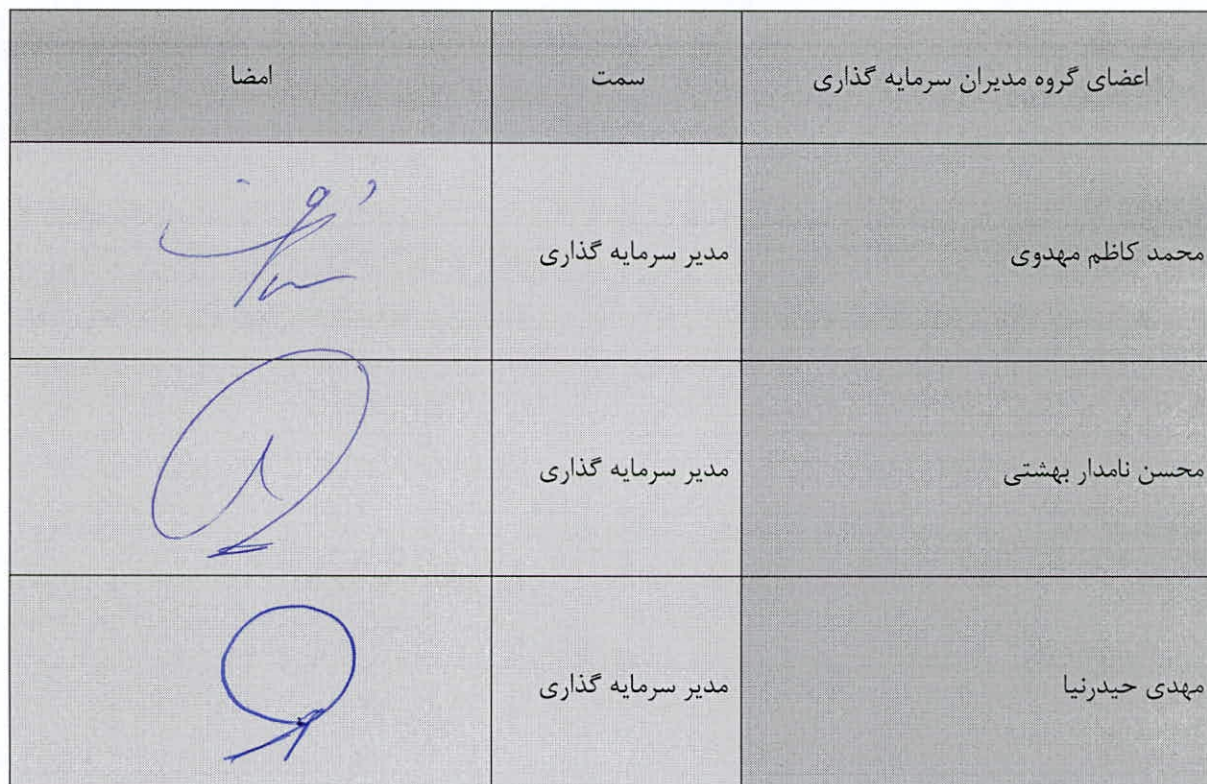 اعضای گروه مدیران سرمایه گذاری
سمت
امضا
محمد کاظم مهدوی
مدیر سرمایه گذاری
محسن نامدار بهشتی
مدیر سرمایه گذاری
مهدی حیدرنیا
مدیر سرمایه گذاری